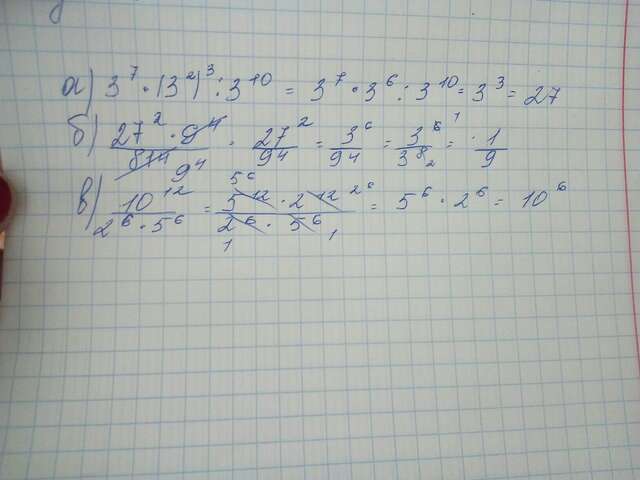 а) 3^7 · (3^2)^3 : 3^10 = 3^7 · 3^6 : 3^10 = 3^3 = 27
б) 27^2 · 9^4 / 81^4 9^4 · 27^2 / 9^4 = 3^6 / 9^4 = 3^6 1 / 3^8 2 = 1 / 9
в) 10^12 / 2^6 · 5^6 = 5^6 5^12 · 2^12 2^6 / 2^6 1 · 5^6 1 = 5^6 · 2^6 = 10^6